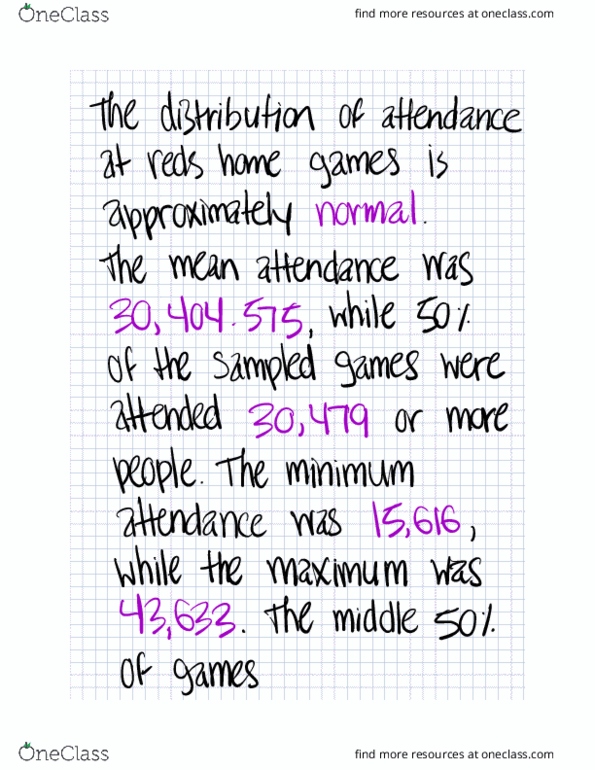 OneClass
find more resources at oneclass.com
The distribution of attendance
at reds home games is
approximately normal.
The mean attendance was
30,404.575, while 50%
of the sampled games were
attended 30,479 or more
people. The minimum
attendance was 15,616,
while the maximum was
43,633. The middle 50%
of games
OneClass
find more resources at oneclass.com